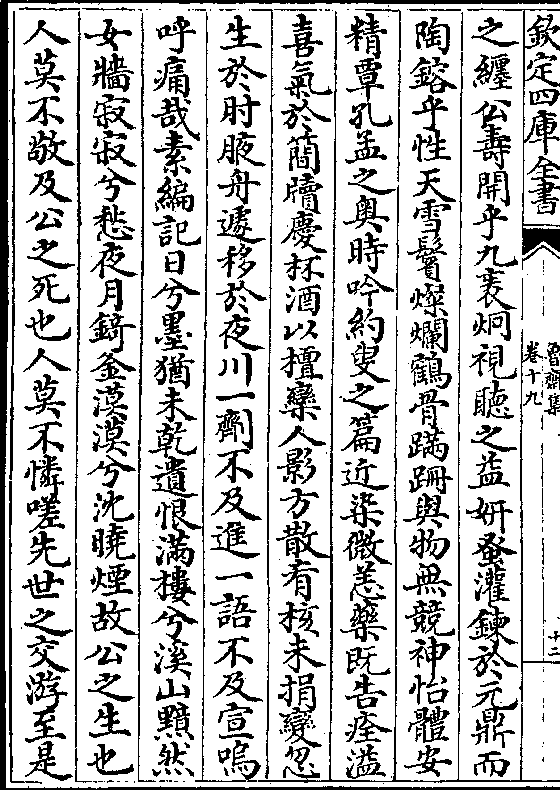 欽定四庫全書
魯齋集
卷十九
十二
之纒公壽開乎九袠炯視聽之益妍蚤灌鍊於元鼎而
陶鎔乎性天雪鬢燦爛鶴骨蹣跚與物無競神怡體安
精覃孔孟之奥時吟約叟之篇近染微恙藥既告痊溢
喜氣於簡牘慶杯酒以擅欒人影方散肴核未捐變忽
生於肘腋舟遽移於夜川一劑不及進一語不及宣嗚
呼痛哉素編記日兮墨猶未乾遺恨滿樓兮溪山黯然
女牆寂寂兮愁夜月錡釜漠漠兮沈曉煙故公之生也
人莫不敬及公之死也人莫不憐嗟先世之交游至是